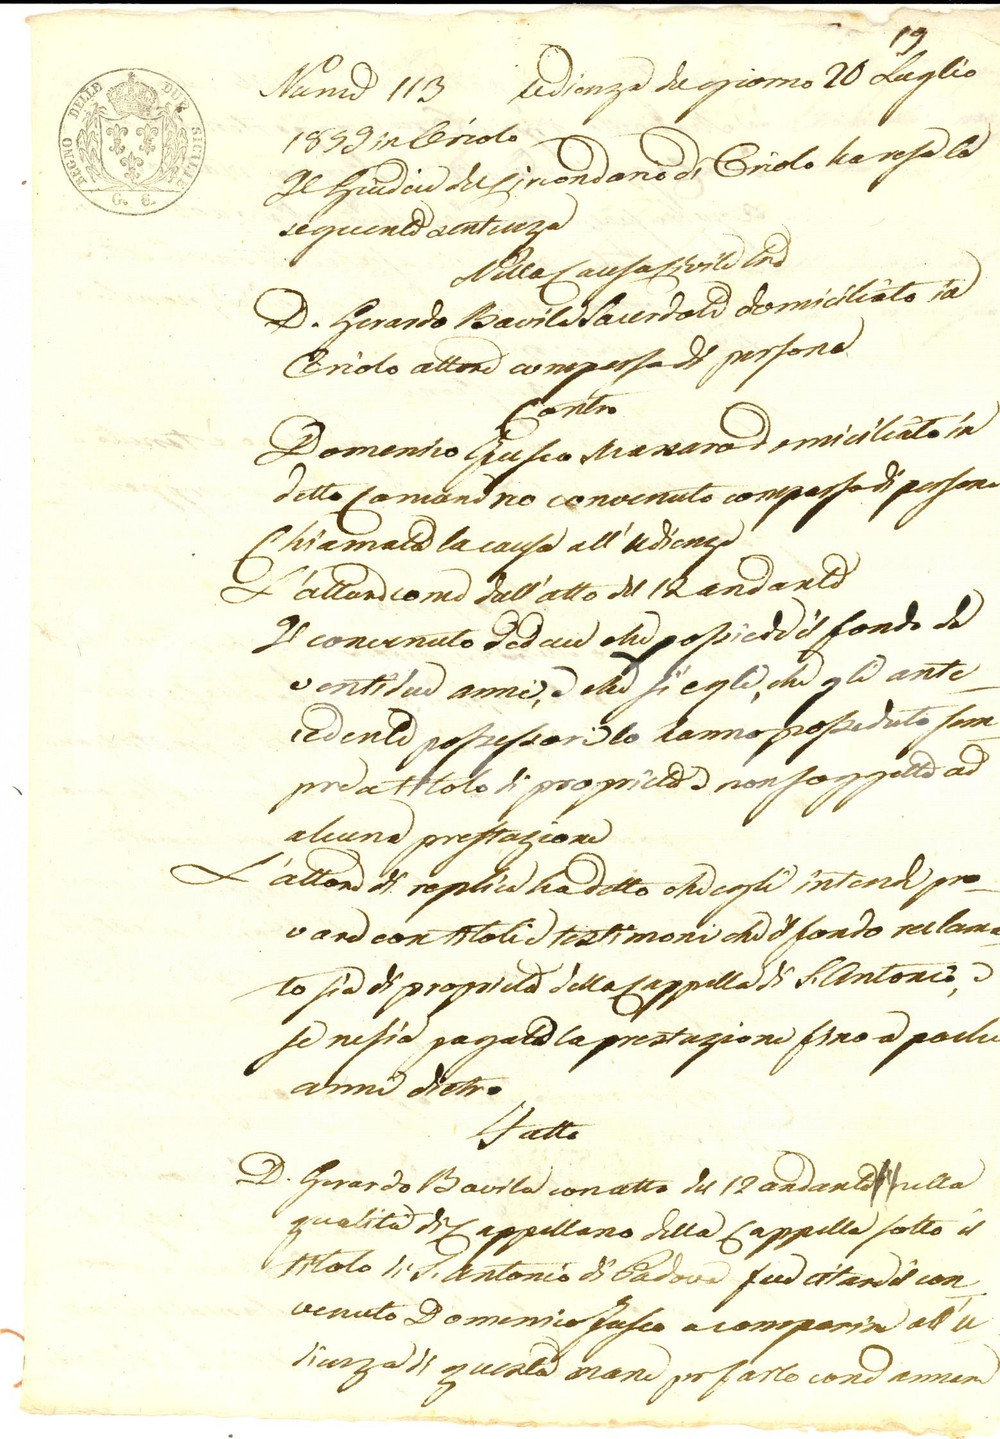 19
REGNO DELLE DUE SICILIE
G. C.
Num.o 113 udienza del giorno 20 Luglio
1839 in
Il Giudice del Circondario di ha resa la
seguente sentenza
Nella Causa Civile tra
D. Gerardo Bavila Sacerdote domiciliato in
attore comparso di persona
Contro
Domenico Fusco Massaro domiciliato in
detto Comune convenuto comparso di persona
Chiamata la causa all'udienza
L'attore come dall'atto del 12 andante
Il convenuto deduce che possiede il fondo da
ventidue anni, e che si egli, che gli ante-
cedenti possessori lo hanno posseduto sem-
pre a titolo di proprietà e non soggetto ad
alcuna prestazione
L'attore di replica ha detto che egli intende pro-
vare con titoli e testimoni che il fondo reclama-
to sia di proprietà della Cappella di S. Antonio, e
se ne sia pagata la prestazione fino a pochi
anni dietro
Fatto
D. Gerardo Bavila con atto del 12 andante nella
qualità di Cappellano della Cappella sotto il
titolo di S. Antonio di Padova fece citare il con-
venuto Domenico Fusco a comparire all'u-
dienza di questa mane per farlo condannare